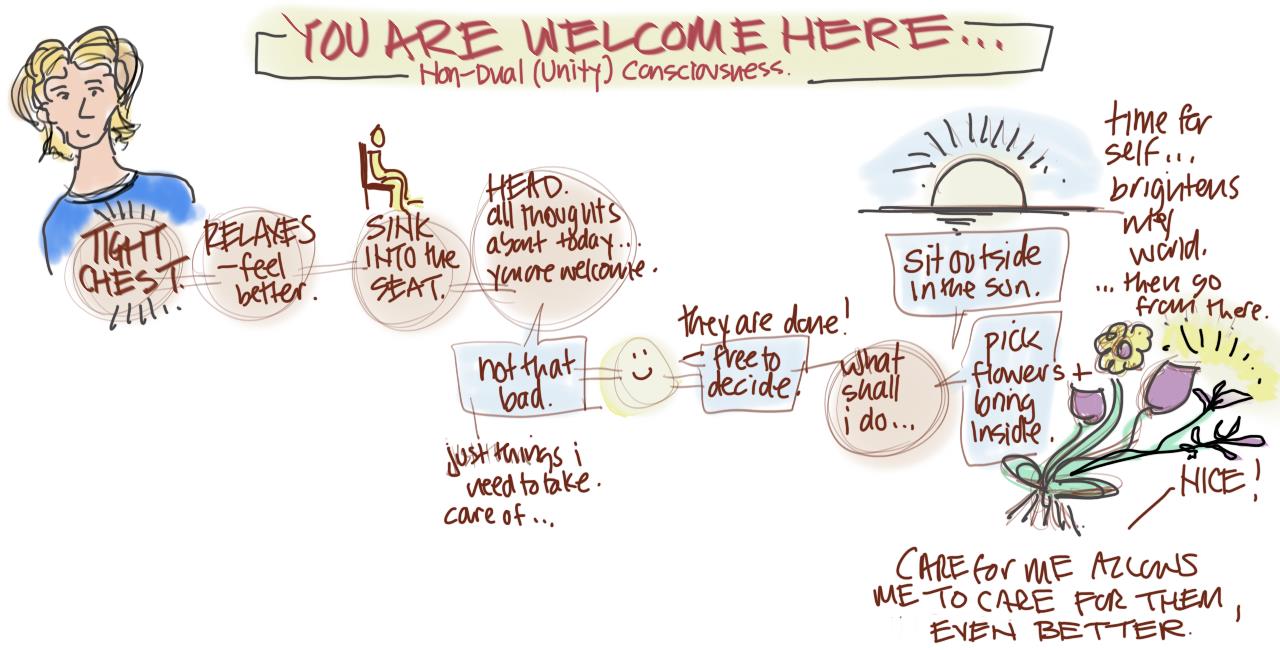 YOU ARE WELCOME HERE...
Non-Dual (Unity) Consciousness.
TIGHT
CHEST.
RELAXES
-feel
better.
SINK
INTO the
SEAT.
HEAD.
all thoughts
about today...
you are welcome.
not that
bad.
just things i
need to take
care of...
they are done!
free to
decide.
what
shall
i do...
Sit outside
in the sun.
pick
flowers +
bring
inside.
time for
self...
brightens
my
world.
... then go
from there.
NICE!
CARE for ME ALLOWS
ME TO CARE FOR THEM,
EVEN BETTER.